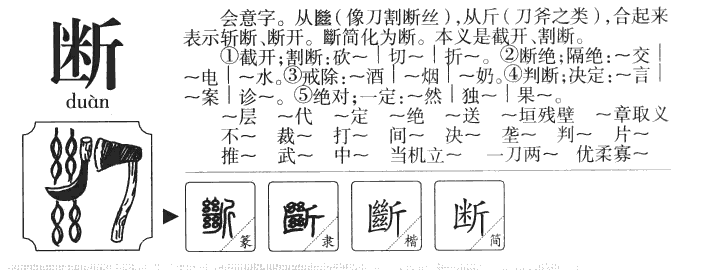 断
duàn
会意字。从𢇍(像刀割断丝),从斤(刀斧之类),合起来
表示斩断、断开。斷简化为断。本义是截开、割断。
①截开;割断:砍～｜切～｜折～。②断绝;隔绝:～交｜
～电｜～水。③戒除:～酒｜～烟｜～奶。④判断;决定:～言｜
～案｜诊～。⑤绝对;一定:～然｜独～｜果～。
～层 ～代 ～定 ～绝 ～送 ～垣残壁 ～章取义
不～ 裁～ 打～ 间～ 决～ 垄～ 判～ 片～
推～ 武～ 中～ 当机立～ 一刀两～ 优柔寡～
斷 篆 斷 隶 斷 楷 断 简